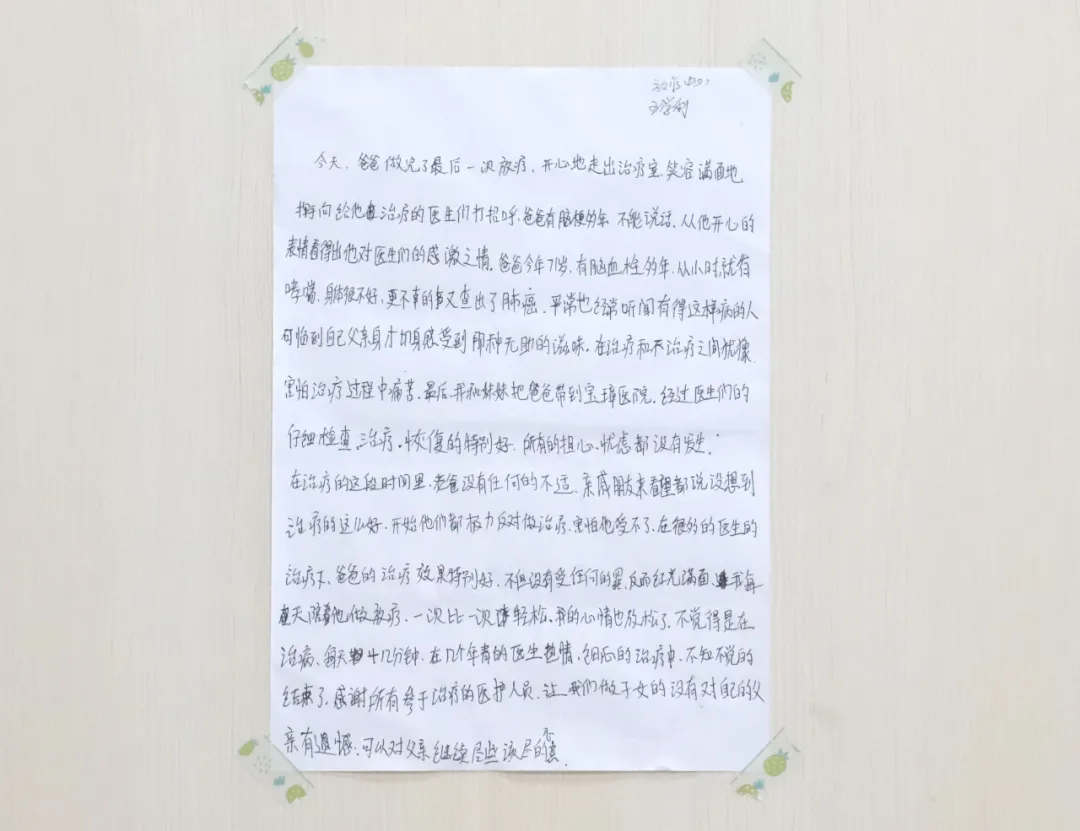 放疗中心
王学利
今天,爸爸做完了最后一次放疗,开心地走出治疗室,笑容满面地
挥手向给他治疗的医生们打招呼,爸爸有脑梗多年 不能说话,从他开心的
表情看得出他对医生们的感激之情。爸爸今年71岁,有脑血栓多年,从小时就有
哮喘,身体很不好,更不幸的事又查出了肺癌,平常也经常听闻有得这样病的人
可临到自己父亲身才切身感受到那种无助的滋味。在治疗和不治疗之间犹像
害怕治疗过程中痛苦,最后,我和妹妹把爸爸带到宝璋医院,经过医生们的
仔细检查、治疗,恢复的特别好,所有的担心、忧虑都没有发生,
在治疗的这段时间里,老爸没有任何的不适,亲戚朋友来看望都说没想到
治疗的这么好,开始他们都极力反对做治疗,害怕他受不了,在很多的医生的
治疗下,爸爸的治疗效果特别好,不但没有受任何的罪,反而红光满面,我每
天陪着他做放疗,一次比一次轻松,我的心情也放松了,不觉得是在
治病,每天十几分钟,在几个年青的医生热情、细心的治疗中,不知不觉的
结束了,感谢所有参于治疗的医护人员,让我们做子女的没有对自己的父
亲有遗憾,可以对父亲继续尽些该尽的孝。